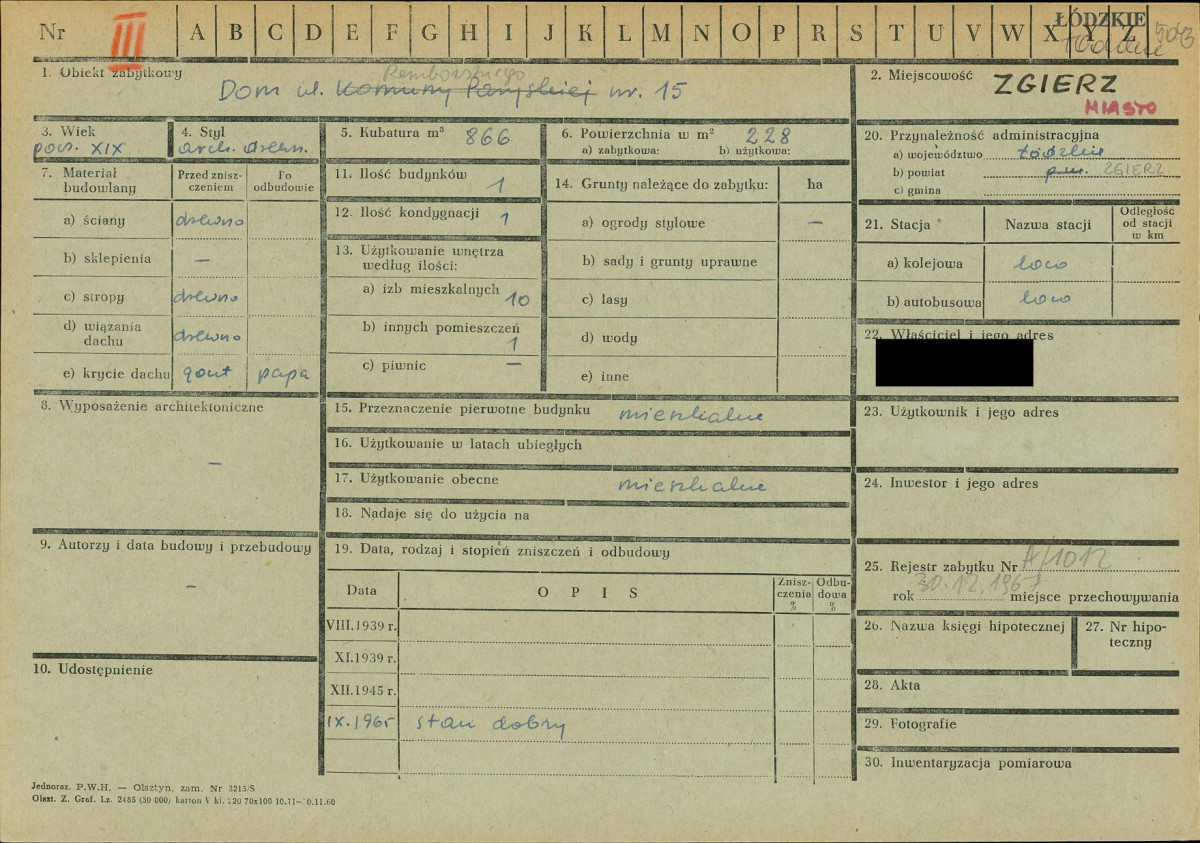 Nr III A B C D E F G H I J K L M N O P R S T U V W X Y Z
ŁÓDZKIE
1. Obiekt zabytkowy
Dom ul. Komuny Paryskiej nr. 15
2. Miejscowość ZGIERZ
MIASTO
3. Wiek
pocz. XIX
4. Styl
arch. drewn.
5. Kubatura m³ 866
6. Powierzchnia w m² 228
a) zabytkowa: b) użytkowa:
20. Przynależność administracyjna
a) województwo łódzkie
b) powiat p.m. ZGIERZ
c) gmina
7. Materiał budowlany
Przed zniszczeniem
Po odbudowie
a) ściany drewno
b) sklepienia —
c) stropy drewno
d) wiązania dachu drewno
e) krycie dachu gont papa
11. Ilość budynków 1
12. Ilość kondygnacji 1
13. Użytkowanie wnętrza według ilości:
a) izb mieszkalnych 10
b) innych pomieszczeń 1
c) piwnic —
14. Grunty należące do zabytku: ha
a) ogrody stylowe —
b) sady i grunty uprawne
c) lasy
d) wody
e) inne
21. Stacja Nazwa stacji Odległość od stacji w km
a) kolejowa loco
b) autobusowa loco
22. Właściciel i jego adres
8. Wyposażenie architektoniczne
—
15. Przeznaczenie pierwotne budynku mieszkalne
16. Użytkowanie w latach ubiegłych
17. Użytkowanie obecne mieszkalne
18. Nadaje się do użycia na
23. Użytkownik i jego adres
24. Inwestor i jego adres
9. Autorzy i data budowy i przebudowy
—
10. Udostępnienie
19. Data, rodzaj i stopień zniszczeń i odbudowy
Data OPIS Zniszczenia % Odbudowa %
VIII.1939 r.
XI.1939 r.
XII.1945 r.
IX.1965 stan dobry
25. Rejestr zabytku Nr A/1012
rok 30.12.1967 miejsce przechowywania
26. Nazwa księgi hipotecznej
27. Nr hipoteczny
28. Akta
29. Fotografie
30. Inwentaryzacja pomiarowa
Jednoraz. P.W.H. — Olsztyn, zam. Nr 3215/S
Olszt. Z. Graf. Lz. 2485 (30 000) karton V kl. 220 70x100 10.11—10.11.60